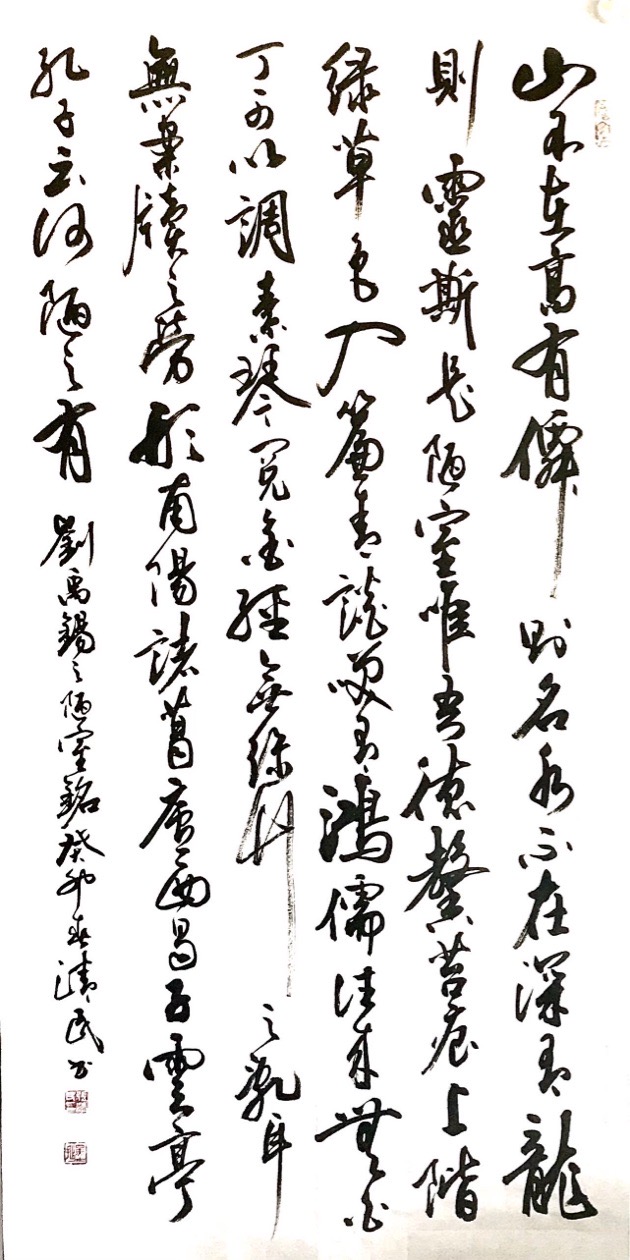 山不在高有僊則名水不在深有龍
則靈斯是陋室唯吾德馨苔痕上階
緑草色入簾青談笑有鴻儒往来無白
丁可以調素琴閲金經無絲竹之亂耳
無案牘之勞形南陽諸葛廬西蜀子雲亭
孔子云何陋之有
劉禹錫之陋室銘癸卯春清民书